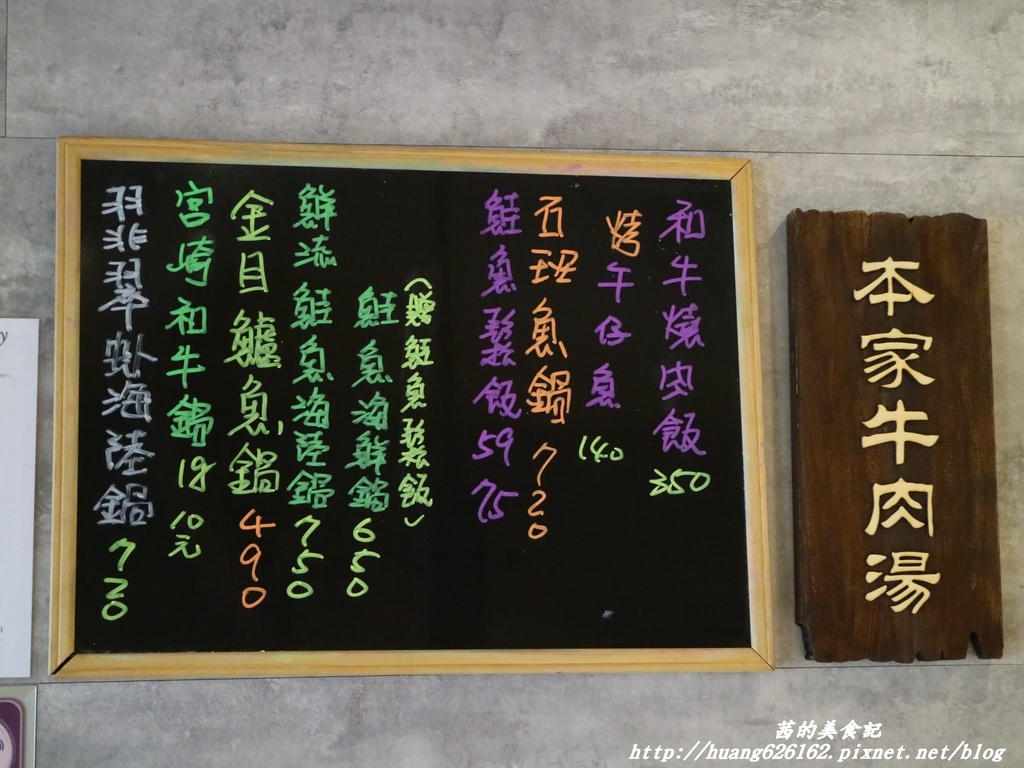 和牛燒肉飯 350
烤午仔魚 140
石班魚鍋 720
鮭魚鬆飯 59 75
鮭魚海鮮鍋 650
鮮流鮭魚海陸鍋 750
金目鱸魚鍋 490
宮崎和牛鍋 1g 10元
翡翠 海陸鍋 720
本家牛肉湯
茜的美食記
http://huang626162.pixnet.net/blog